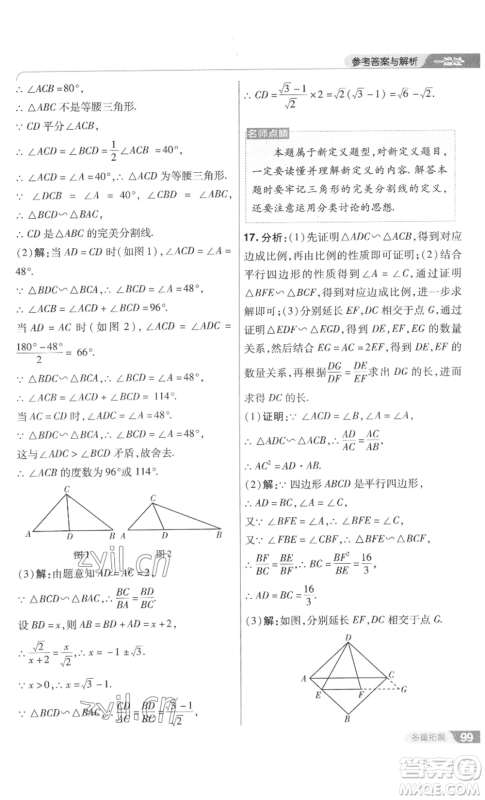 参考答案与解析 一遍过
∴ ∠ACB=80°,
∴ △ABC 不是等腰三角形.
∵ CD 平分∠ACB,
∴ ∠ACD=∠BCD=1/2∠ACB=40°,
∴ ∠ACD=∠A=40°,
∴ △ACD 为等腰三角形.
∵ ∠DCB=∠A=40°, ∠CBD=∠ABC,
∴ △BCD∽△BAC,
∴ CD 是△ABC 的完美分割线.
(2)解:当 AD=CD 时(如图 1), ∠ACD=∠A=
48°.
∵ △BDC∽△BCA, ∴ ∠BCD=∠A=48°,
∴ ∠ACB=∠ACD+∠BCD=96°.
当 AD=AC 时(如图 2), ∠ACD=∠ADC=
(180°-48°)/2=66°.
∵ △BDC∽△BCA, ∴ ∠BCD=∠A=48°,
∴ ∠ACB=∠ACD+∠BCD=114°.
当 AC=CD 时, ∠ADC=∠A=48°,
∵ △BDC∽△BCA, ∴ ∠BCD=∠A=48°,
这与∠ADC>∠BCD 矛盾,故舍去.
∴ ∠ACB 的度数为 96°或 114°.
C
A D B
图 1
C
A D B
图 2
(3)解:由题意知 AC=AD=2,
∵ △BCD∽△BAC, ∴ BC/BA=BD/BC.
设 BD=x, ∴ (√2)²=x(x+2),
∴ √2/(x+2)=x/√2, ∴ x=-1±√3.
∵ x>0, ∴ x=√3-1.
∵ △BCD∽△BAC, ∴ CD/AC=BD/BC=(√3-1)/√2,
∴ CD=(√3-1)/√2×2=√2(√3-1)=√6-√2.
名师点睛
本题属于新定义题型,对于新定义问题,
一定要读懂并理解新定义的内容.在解答本
题时要牢记三角形的完美分割线的定义,还
要注意运用分类讨论的思想.
17. 分析:(1)先证明△ADC∽△ACB,得到对应
边成比例,再由此可证;(2)结合
平行四边形的性质,先证明
△BFE∽△BCF,得到对应边成比例,求
解即可;(3)分别延长 EF,DC 相交于点 G,
通过证明△EDF∽△EGD,得到 EG 的数量
关系,然后结合 EG=AC=2EF,得到 DE 与 EF 的
数量关系,再由DG/DF=DE/EF
求得 DC 的长.
(1)证明:∵ ∠ACD=∠B, ∠A=∠A,
∴ △ADC∽△ACB, ∴ AD/AC=AC/AB,
∴ AC²=AD·AB.
(2)解:∵ 四边形 ABCD 是平行四边形,
∴ AD=BC, ∠A=∠C,
又∵ ∠BFE=∠A, ∴ ∠BFE=∠C,
又∵ ∠FBE=∠CBF, ∴ △BFE∽△BCF,
∴ BF/BC=BE/BF, ∴ BC=BF²/BE=16/3,
∴ AD=BC=16/3.
(3)解:如图,分别延长 EF,DC 相交于点 G,
D
A C
E F G
B
多重拓展 99
zyjl.cn
zyjl.cn
答案圈